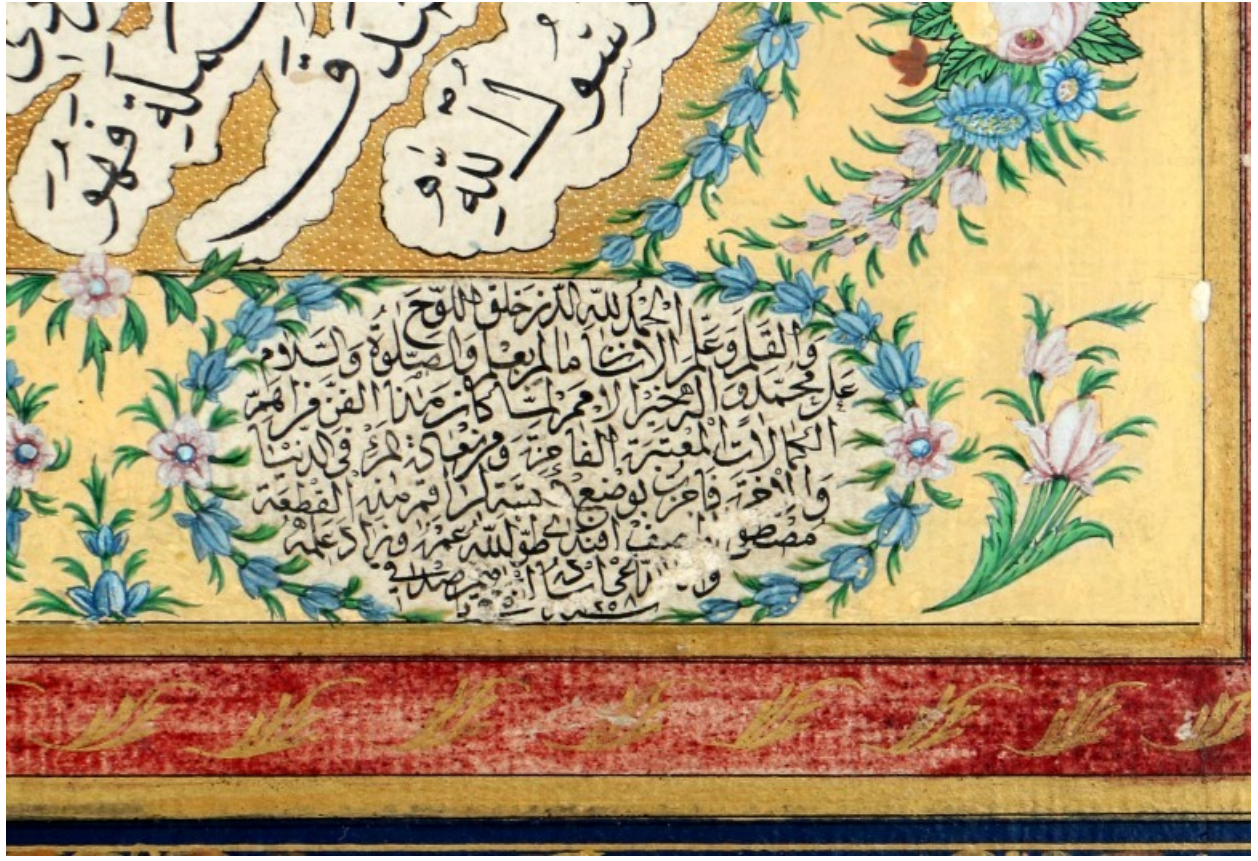 رسول الله
فهو
الحمد لله الذي خلق اللوح
والقلم وعلم الانسان ما لم يعلم والصلوة والسلام
على محمد وآله خير الامم لما كان هذا الفن من اهم
الكمالات المعتبرة الفاخرة ومن سعادة المرء في الدنيا
والآخرة فاجزت بوضع الكتبة لراقم هذه القطعة
واصف افندي طول الله عمره وزاد علمه
صدقي